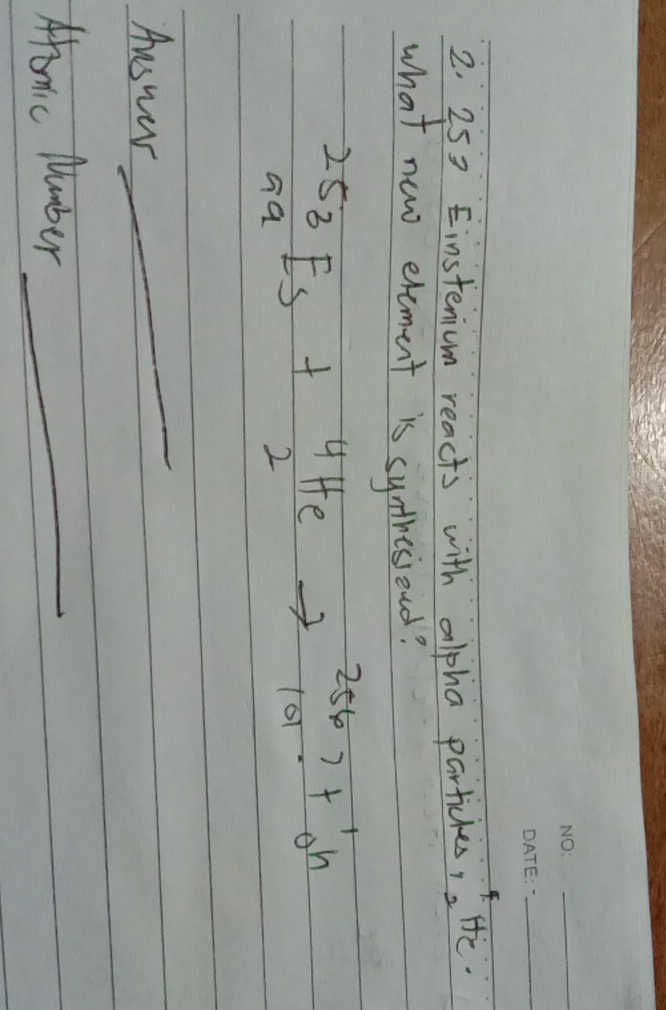 NO:
DATE:
2. 253 Einstenium reacts with alpha particles, ⁴₂He.
what new element is synthesized?
253 4 256 1
Es + He → ? + n
99 2 101 0
Answer
Atomic Number